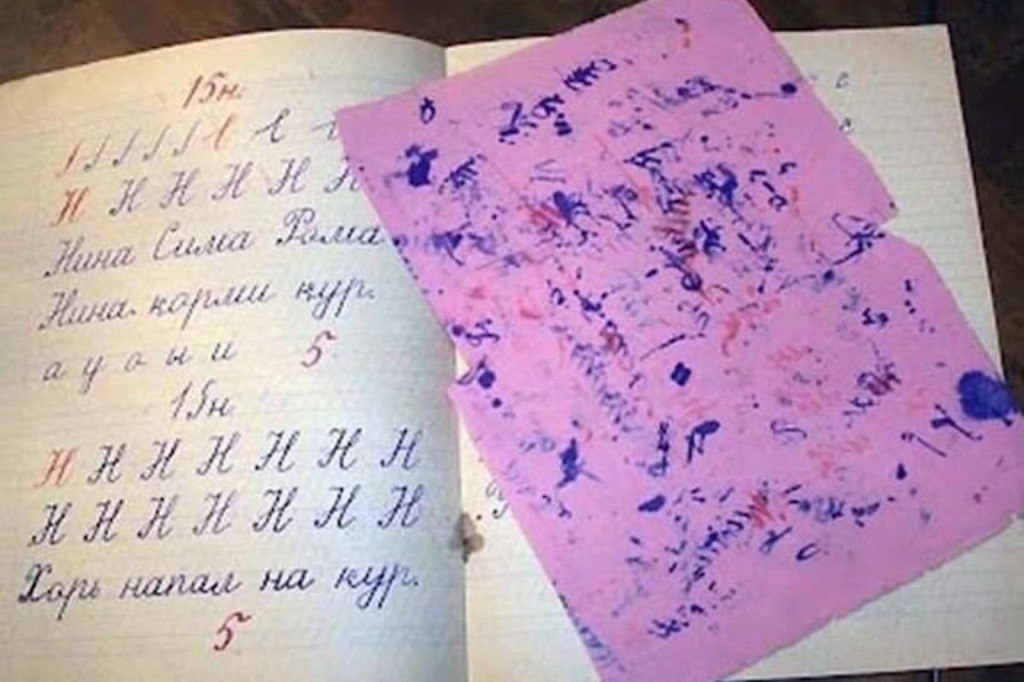 15н.
Н Н Н Н Н Н
Нина Сима Рома
Нина. корми кур.
а у о ы и 5
15н.
Н Н Н Н Н Н Н
Н Н Н Н Н Н Н
Хорь напал на кур.
5